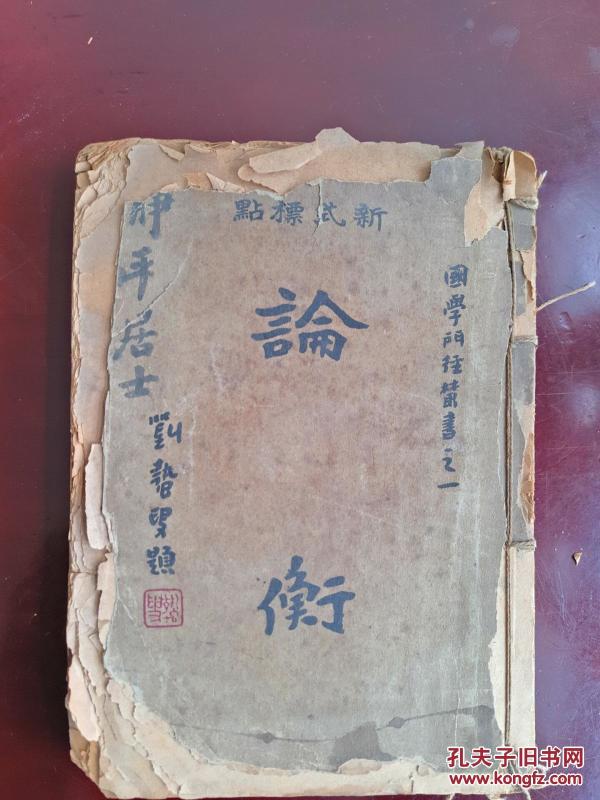 新式標點
國學門徑叢書之一
論衡
居士
題
孔夫子旧书网
www.kongfz.com